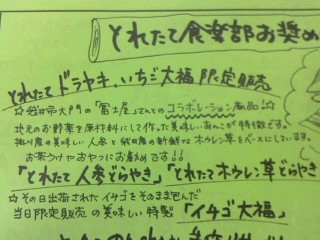 とれたて食楽部お奨め
とれたてドラヤキ、いちご大福 限定販売
☆袋井市大門の「冨士屋」さんとのコラボレーション商品!☆
地元のお野菜を原材料にして作った美味しいあんこが特徴です。
掛川産の美味しい人参と袋井産の新鮮なホウレン草をベースにしています。
お茶うけやおやつにお勧めです!!
「とれたて人参どらやき」「とれたてホウレン草どらやき
☆その日出荷されたイチゴをそのまま包んだ
当日限定販売の美味しい特製「イチゴ大福」